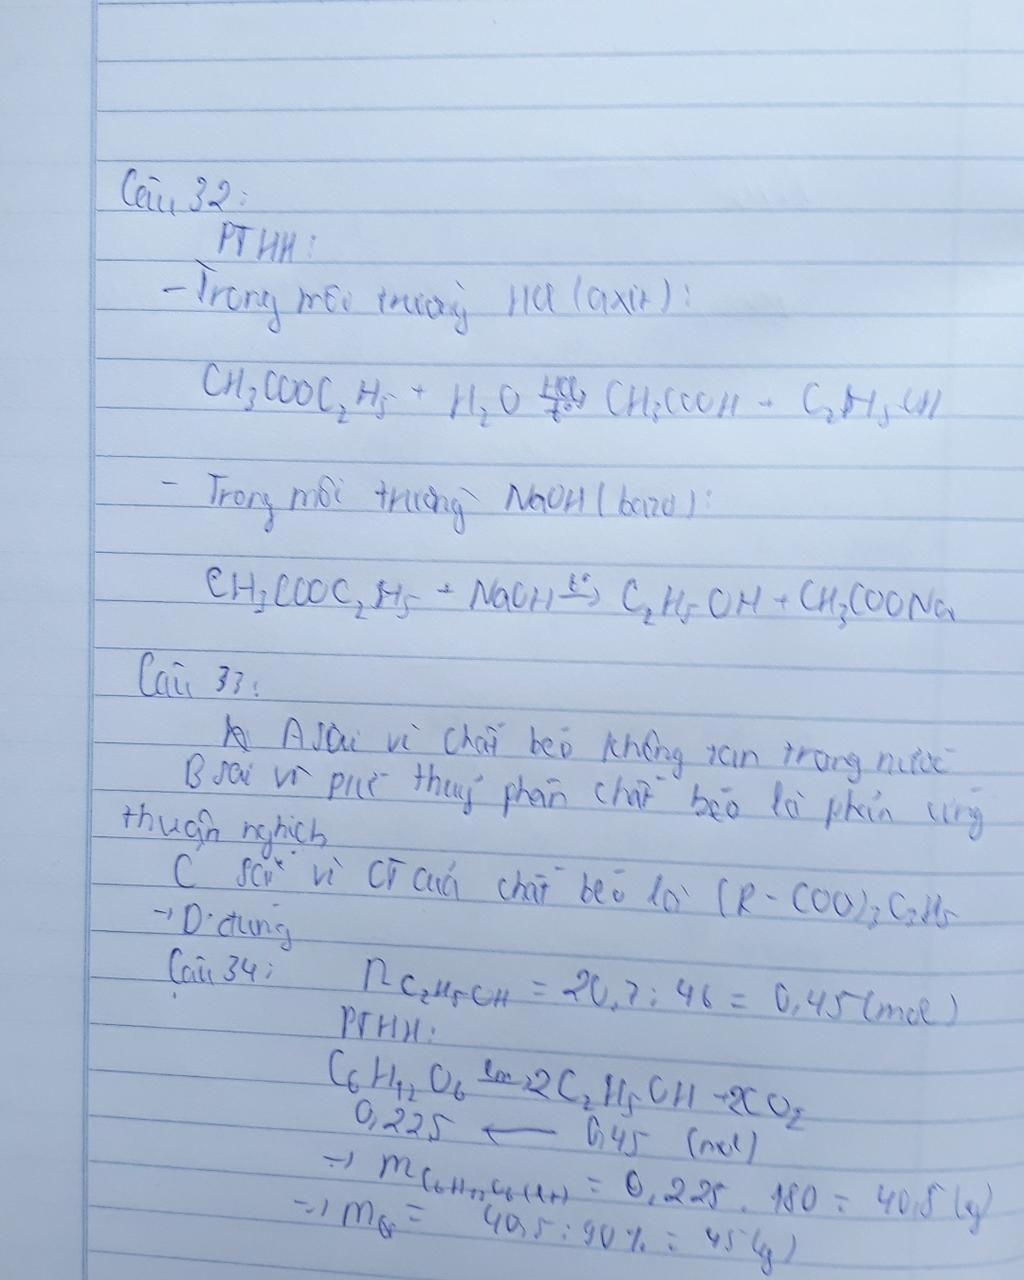 Câu 32:
PTHH:
- Trong môi trường HCl (axit):
CH₃COOC₂H₅ + H₂O ⇌ CH₃COOH + C₂H₅OH
- Trong môi trường NaOH (bazơ):
CH₃COOC₂H₅ + NaOH t° → C₂H₅OH + CH₃COONa
Câu 33:
A sai vì chất béo không tan trong nước
B sai vì pứ thuỷ phân chất béo là phản ứng
thuận nghịch
C sai vì CT của chất béo là (R-COO)₃C₃H₅
→ D đúng
Câu 34: nC₂H₅OH = 20,7 : 46 = 0,45 (mol)
PTHH:
C₆H₁₂O₆ lm → 2C₂H₅OH + 2CO₂
0,225 ← 0,45 (mol)
=> mC₆H₁₂O₆(LT) = 0,225 . 180 = 40,5 (g)
=> m = 40,5 : 90% = 45 (g)